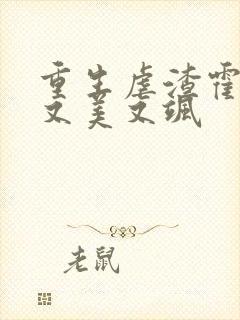 重生虐渣霍
又美又飒
老鼠